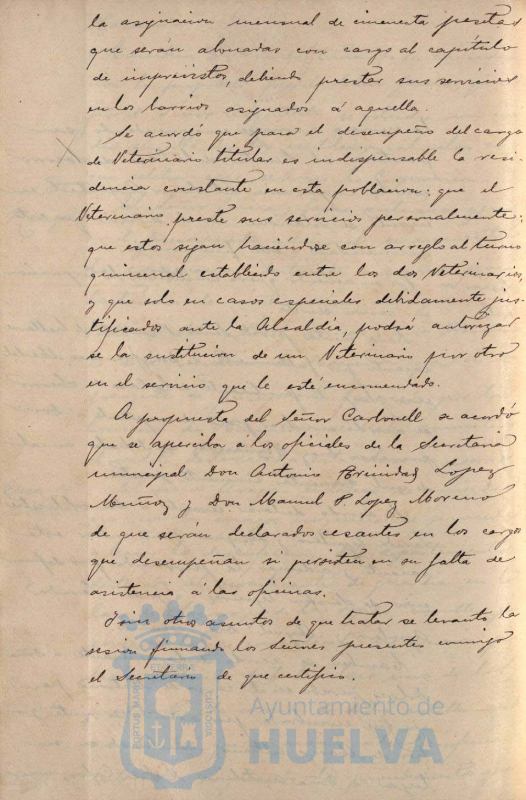 la asignacion mensual de cincuenta pesetas
que serán abonadas con cargo al capítulo
de imprevistos, debiendo prestar sus servicios
en los barrios asignados á aquella.
Se acordó que para el desempeño del cargo
de Veterinario titular es indispensable la resi-
dencia constante en esta poblacion: que el
Veterinario preste sus servicios personalmente:
que estos sigan haciéndose con arreglo al turno
quincenal establecido entre los dos Veterinarios,
y que solo en casos especiales debidamente jus-
tificados ante la Alcaldía, podrá autorizar
se la sustitucion de un Veterinario por otro
en el servicio que le esté encomendado.
A propuesta del Señor Carbonell se acordó
que se aperciba á los oficiales de la Secretaria
municipal Don Antonio Trinidad Lopez
Muñoz y Don Manuel P. Lopez Moreno
de que serán declarados cesantes en los cargos
que desempeñan si persisten en su falta de
asistencia á las oficinas.
Y sin otros asuntos de que tratar se levantó la
sesion firmando los Señores presentes conmigo
el Secretario de que certifico.
PORTUS MARIS
CUSTODIA
Ayuntamiento de
HUELVA